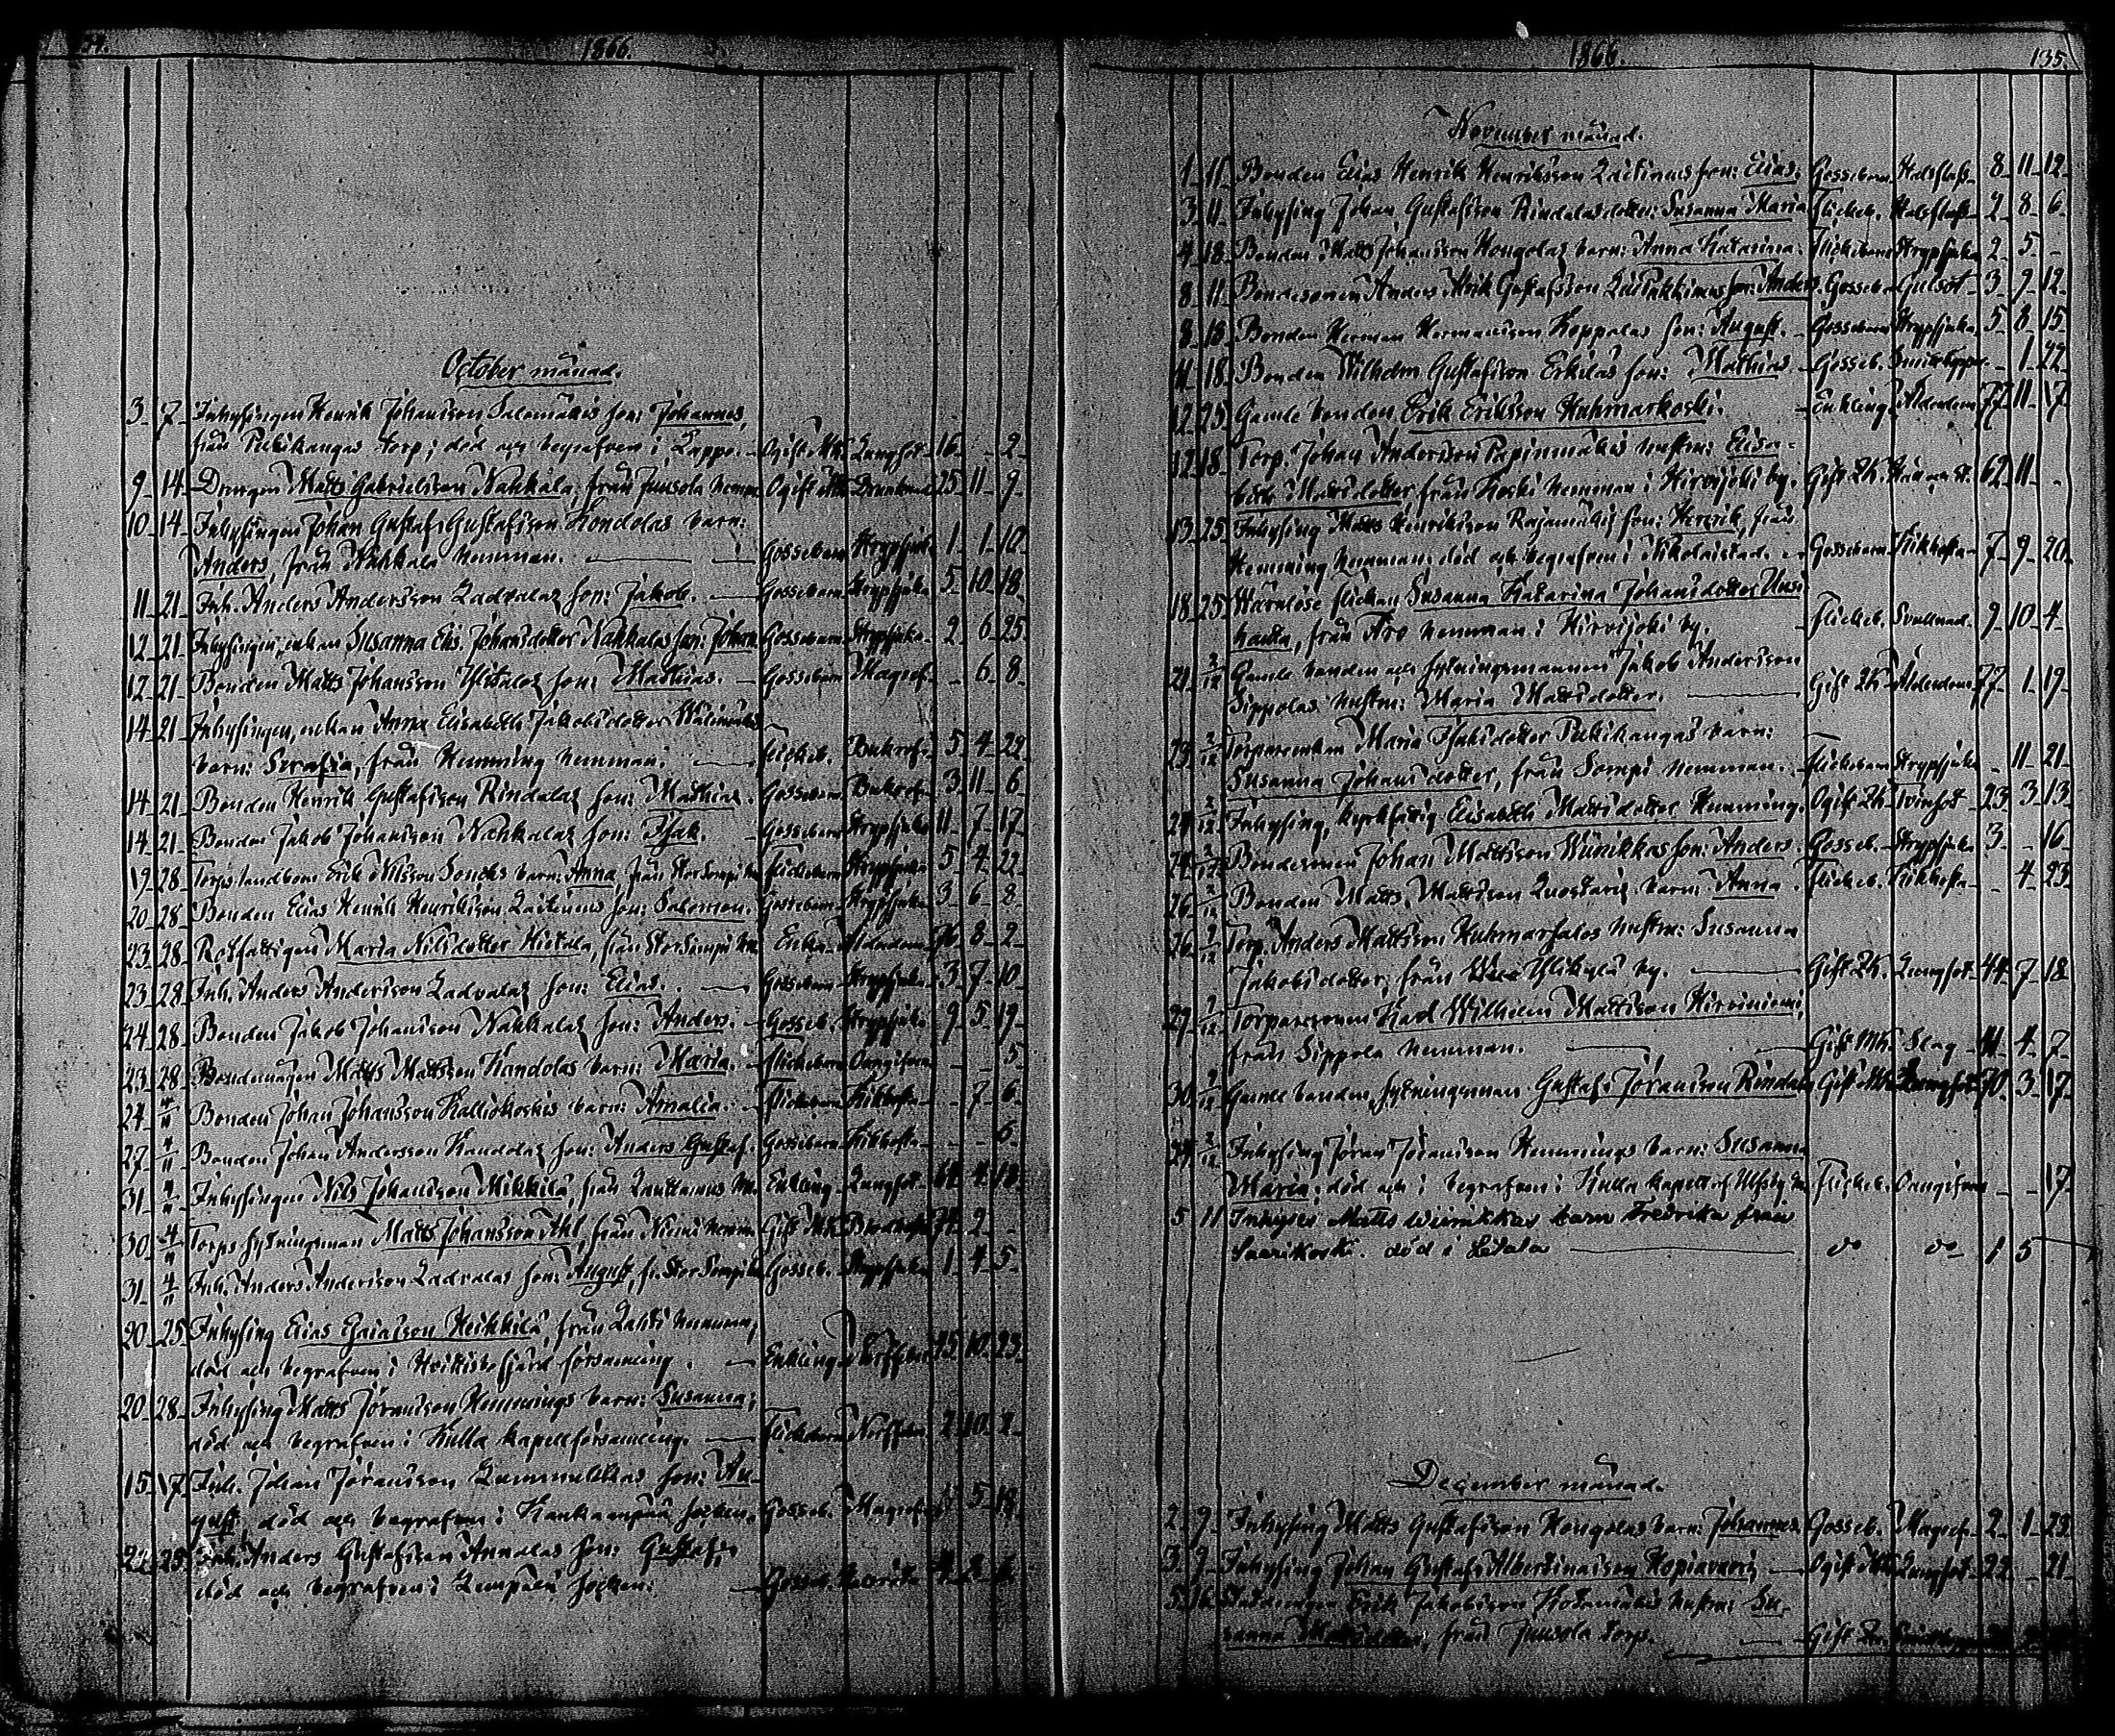 1866.
October månad.
3 7 Inhysingen Henrik Johansson Salomäkis son: Johannes,
från Pukikangas torp; död och begrafven i Lappo. Ogift Mk. Lungsot 16 - 2
9 14 Drengen Matts Gabrielsson Nahkala, från Juusola hemm. Ogift Mk. Drunknad 25 11 9
10 14 Inhysingen Johan Gustaf Gustafsson Kondolas barn:
Anders, från Nahkala hemman. Gossebarn Strypsjuka 1 1 10
11 21 Inh. Anders Andersson Ladvalas son: Jakob. Gossebarn Strypsjuka 5 10 18
12 21 Inhysingen, enkan Susanna Elis. Johansdotter Nahkalas son: Johan Gossebarn Strypsjuka 2 6 25
12 21 Bonden Matts Johansson Ylitalos son: Mathias. Gossebarn Magref. - 6 8
14 21 Inhysingen, enkan Anna Elisabeth Jakobsdotter Välimäkis
barn: Serafia, från Hemming hemman. Flickeb. Bukref. 5 4 22
14 21 Bonden Henrik Gustafsson Rindalas son: Mathias. Gossebarn Bukref. 3 11 6
14 21 Bonden Jakob Johansson Nahkalas son: Isak. Gossebarn Strypsjuka 11 7 17
19 28 Torpslandbon Erik Nilsson Soncks barn: Anna, från Storsompi Flickebarn Strypsjuka 5 4 22
20 28 Bonden Elias Henrik Henriksson Laitinens son: Salomon. Gossebarn Strypsjuka 3 6 8
23 28 Rotfattigen Maria Nilsdotter Hietala, från Storsompi Enka Ålderdom 76 8 2
23 28 Inh. Anders Andersson Ladvalas son: Elias. Gossebarn Strypsjuka 3 7 10
24 28 Bonden Jakob Johansson Nahkalas son: Anders. Gosseb. Strypsjuka 9 5 19
23 28 Bondemågen Matts Mattsson Kandolas barn: Maria. Flickebarn Oangifven - - 5
24 4/11 Bonden Johan Johansson Kalliokoskis barn: Amalia. Flickebarn Kikhosta - 7 6
27 4/11 Bonden Johan Andersson Kandolas son: Anders Gustaf. Gossebarn Kikhosta - - 6
31 4/11 Inhysingen Nils Johansson Mikkilä, från Enkling Lungsot
30 4/11 Torps sytningsman Matts Johansson Ahl, från Niemi hemm. Gift Mk. 2 -
31 4/11 Inh. Anders Andersson Ladvalas son: August, fr. Storsompi Gosseb. Strypsjuka 1 4 5
20 25 Inhysing Elias Esaiasson Heikkilä, från Lahti hemman,
död och begrafven i Hvittisbofjärd församling. Enkling 10 23
20 28 Inhysing Matts Jöransson Hemmings barn: Susanna;
död och begrafven i Kulla kapellförsamling. Flickebarn 2 10
15 17 Inh. Johan Jöransson Lummukkas son: Au-
gust, död och begrafven i Kankaanpää socken. Gosseb. Magref. 5
22 28 Inh. Anders Gustafsson Annalas son: Gustaf,
död och begrafven i Lempälä socken. Gosseb.
1866. 135.
November månad.
1 11 Bonden Elias Henrik Henriksson Laitinens son: Elias. Gossebarn Halsfluss 8 11 12
3 11 Inhysing Johan Gustafsson Rindalas dotter: Susanna Maria Flickeb. Halsfluss 2 8 6
4 18 Bonden Matts Johansson Kongolas barn: Anna Katarina. Flickebarn Strypsjuka 2 5 -
8 11 Bondesonen Anders Erik Gustafsson son: Anders. Gosseb. Gulsot 3 9 12
8 18 Bonden Herman Hermansson Koppalas son: August. Gossebarn Strypsjuka 5 8 15
11 18 Bonden Wilhelm Gustafsson Erkilas son: Mathias. Gosseb. - 1 22
12 25 Gamle bonden Erik Eriksson Kuhmarkoski. Enkling Ålderdom 77 11 17
12 18 Torp. Johan Andersson Papinmäkis hustru: Elisa-
beth Mattsdotter från Koski hemman i Hirvijoki by. Gift Qk. 62 11 -
13 25 Inhysing Matts Henriksson Rajamäkis son: Henrik, från
Hemming hemman, död och begrafven i Nikolaistad. Gossebarn Kikhosta 7 9 20
18 25 Värnlöse flickan Susanna Katarina Johansdotter Uusi
hanta, från Aro hemman i Hirvijoki by. Flickeb. Svullnad. 9 10 4
21 2/12 Gamle bonden och sytningsmannen Jakob Andersson
Sippolas hustru: Maria Mattsdotter. Gift Qk. Ålderdom 77 1 19
23 2/12 Torparenkan Maria Isaksdotter Pukikangas barn:
Susanna Johansdotter, från Sompi hemman. Flickebarn Strypsjuka - 11 21
24 2/12 Inhysing, kyrkfattig Elisabeth Mattsdotter Hemming. Ogift Qk. Tvinsot 23 3 13
24 2/12 Bondesonen Johan Mattsson Wiinikkas son: Anders. Gosseb. Strypsjuka 3 - 16
26 2/12 Bonden Matts Mattsson Luostaris barn: Anna. Flickeb. Kikhosta - 4 23
26 2/12 Torp. Anders Mattsson Kuhmarsalos hustru: Susanna
Jakobsdotter, från Ylikylä by. Gift Qk. Lungsot 44 7 18
29 2/12 Torparesonen Karl Wilhelm Mattsson Hirviniemi,
från Sippola hemman. Gift Mk. Slag 41 4 7
30 2/12 Gamle bonden, sytningsman Gustaf Jöransson Rindala Gift Mk. Lungsot 70 3 17
24 2/12 Inhysing Jöran Jöransson Hemmings barn: Susanna
Maria; död och i begrafven i Kulla kapell af Ulfsby Flickeb. Oangifven - - 17
5 11 Inhyses Matts Wiinikkas barn Fredrika från
Saarikoski. död i Letala do do 1 5
December månad.
2 9 Inhysing Matts Gustafsson Kongolas barn: Johannes. Gosseb. Magref. 2 1 23
3 9 Inhysing Johan Gustaf Albertinasson Kopiavori Ogift Mk. Lungsot 22 - 21
5 16 Erik Jakobsson Kotamäkis hustru: Su-
sanna Mattsdotter, från Juusola torp. Gift Qk.